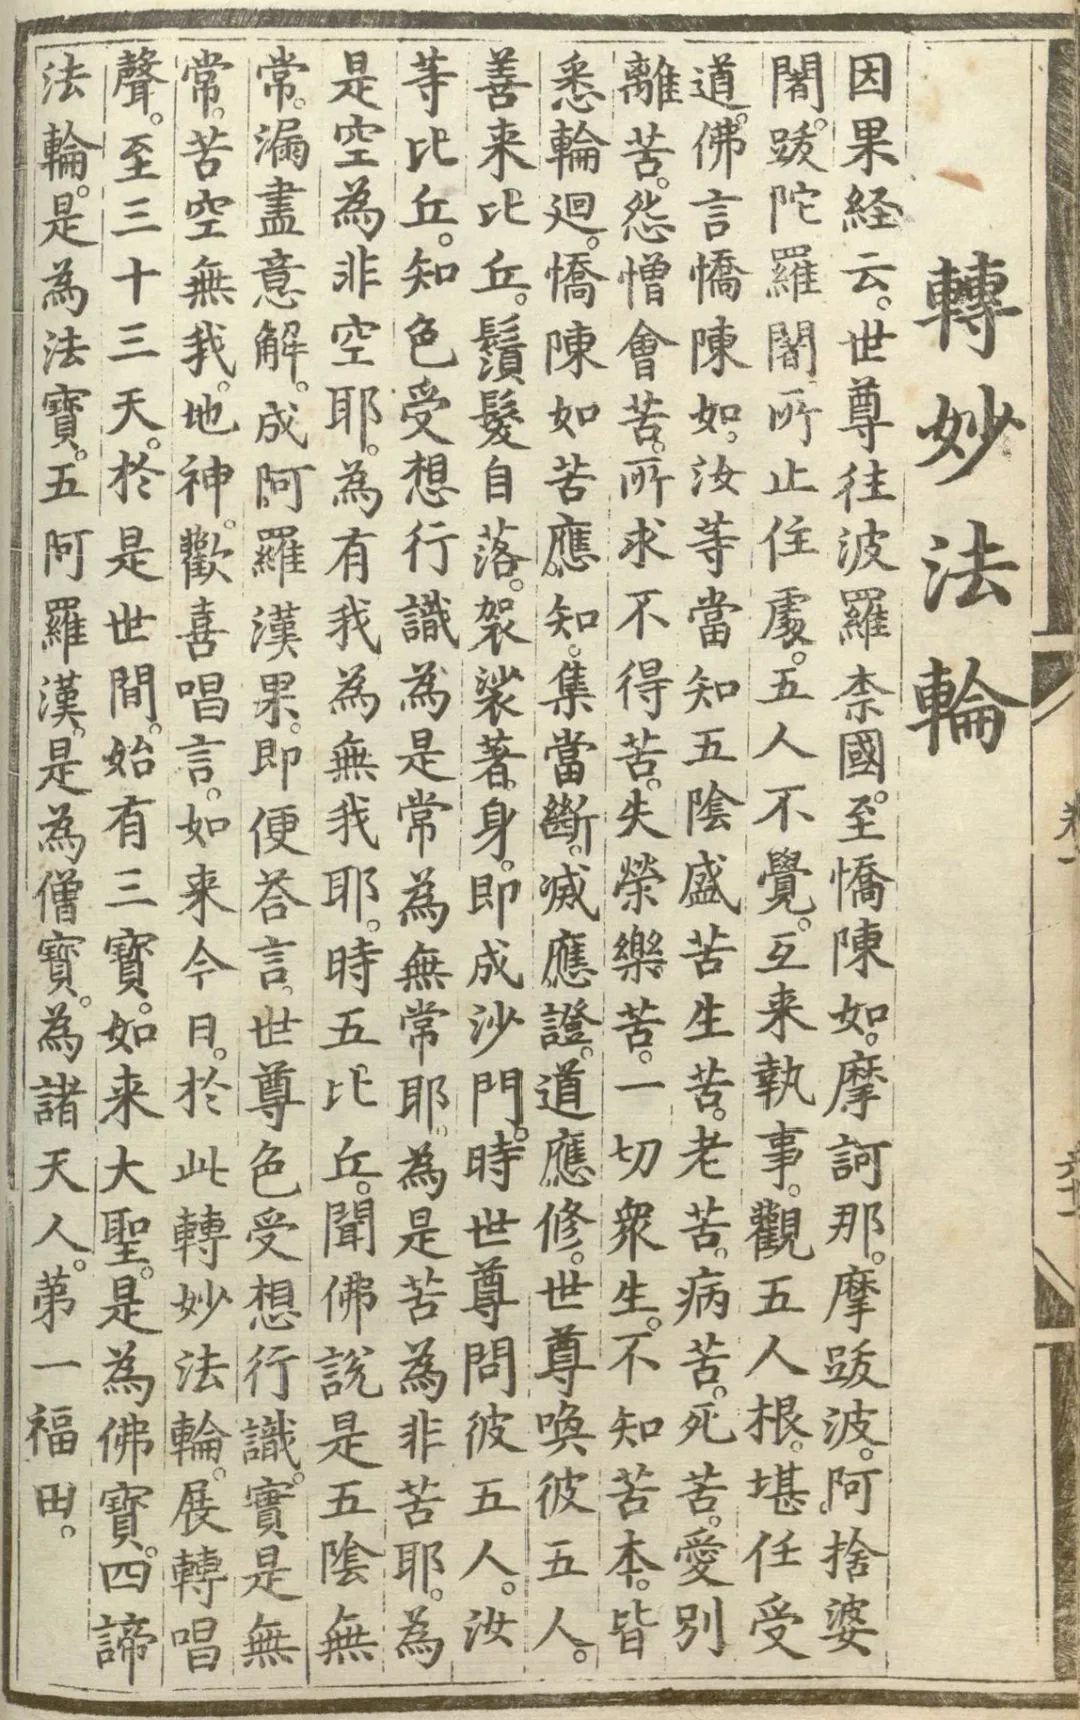 轉妙法輪
因果経云。世尊往波羅柰國。至憍陳如。摩訶那。摩跋波。阿捨婆
闍。跋陀羅闍。所止住處。五人不覺。互来執事。觀五人根。堪任受
道。佛言憍陳如。汝等當知五陰盛苦生苦。老苦。病苦。死苦。愛別
離苦。怨憎會苦。所求不得苦。失榮樂苦。一切衆生。不知苦本。皆
悉輪迴。憍陳如苦應知。集當斷。滅應證。道應修。世尊喚彼五人。
善来比丘。鬚髮自落。袈裟著身。即成沙門。時世尊問彼五人。汝
等比丘。知色受想行識為是常為無常耶。為是苦為非苦耶。為
是空為非空耶。為有我為無我耶。時五比丘。聞佛說是五陰無
常。漏盡意解。成阿羅漢果。即便荅言。世尊色受想行識。實是無
常。苦空無我。地神。歡喜唱言。如来今日。於此轉妙法輪。展轉唱
聲。至三十三天。於是世間。始有三寳。如来大聖。是為佛寳。四諦
法輪。是為法寳。五阿羅漢。是為僧寳。為諸天人。第一福田。